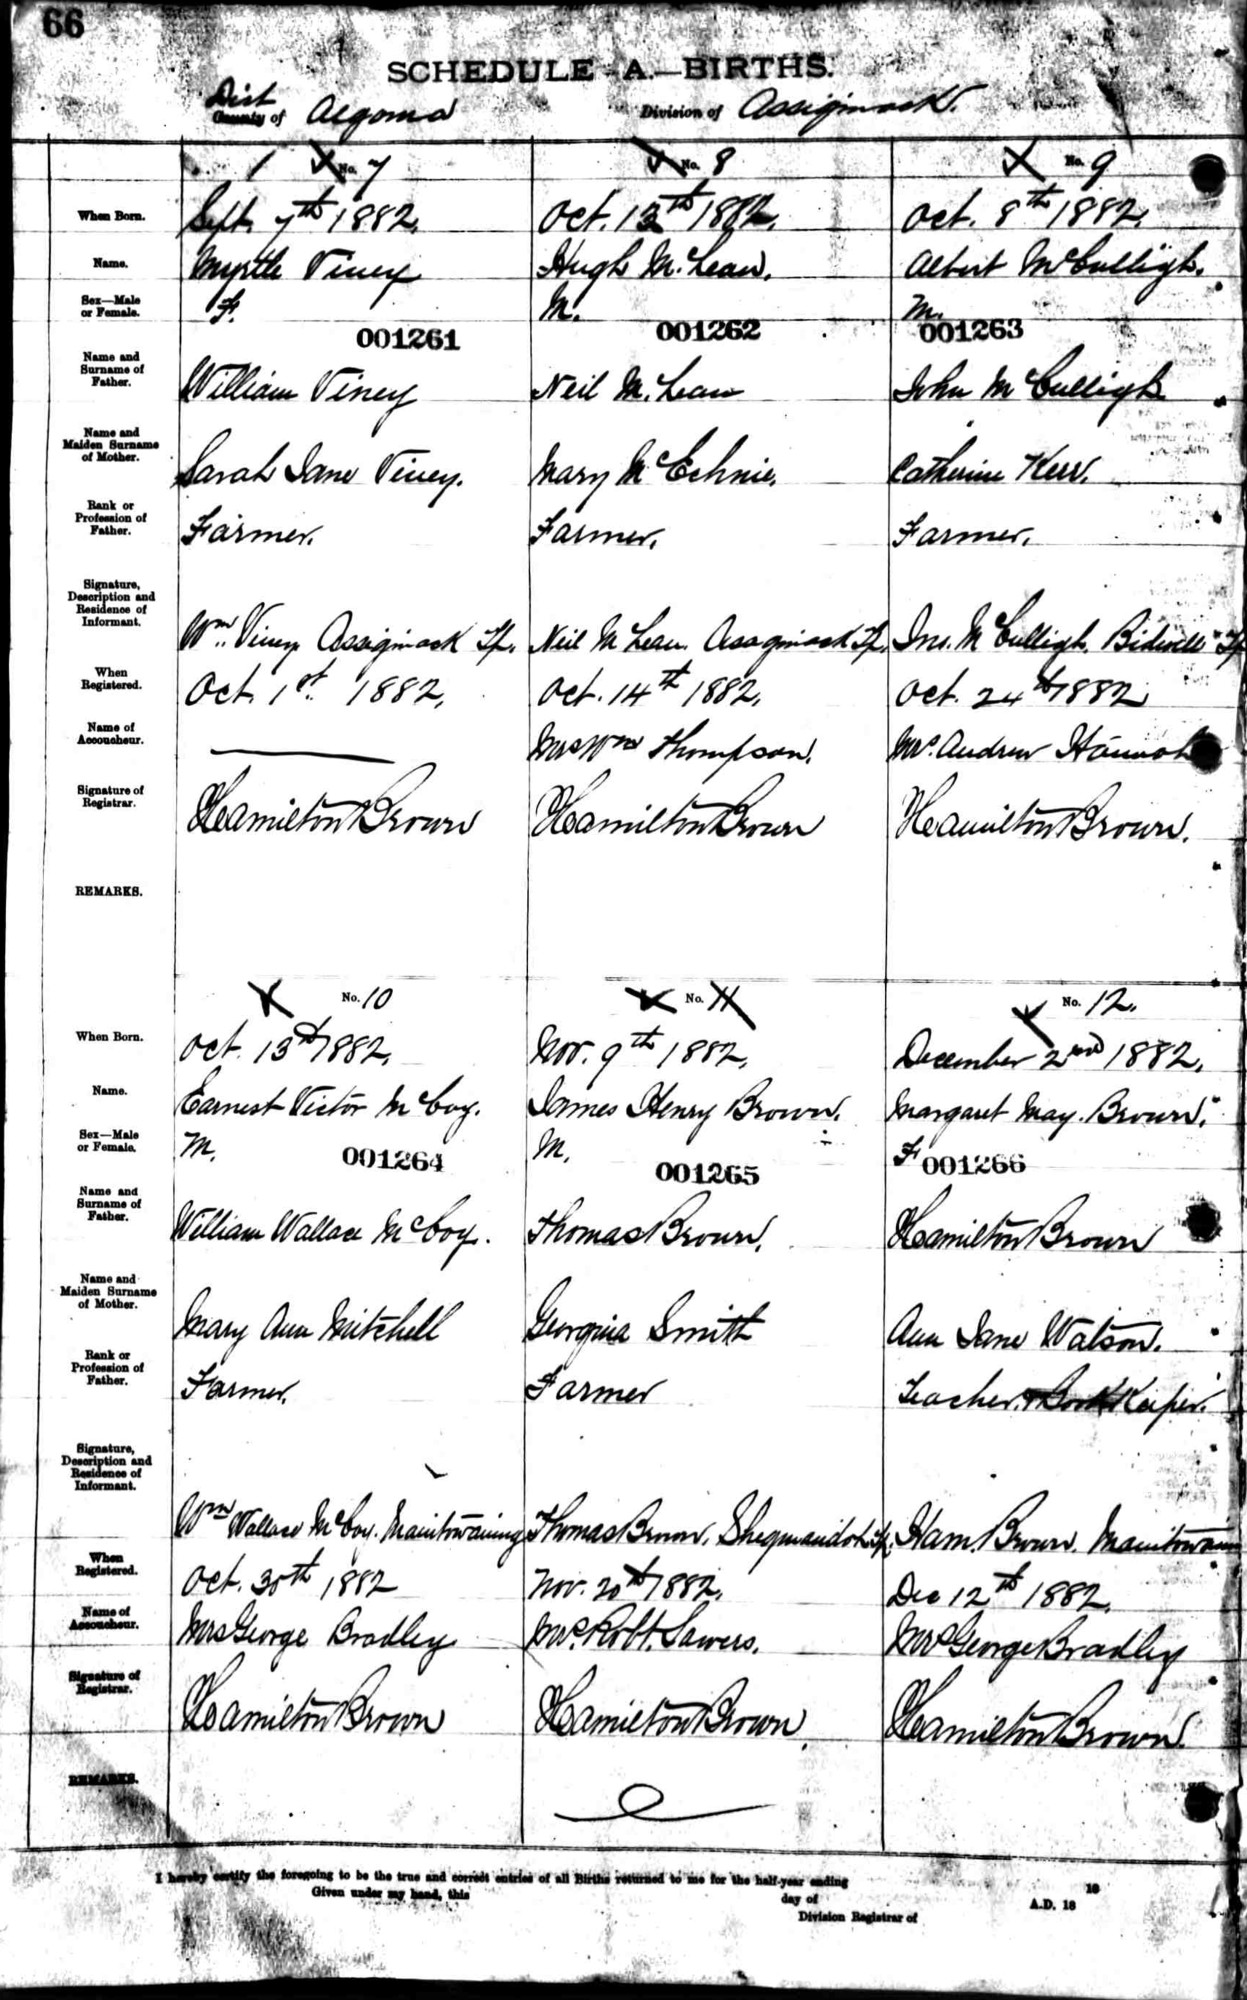 66
SCHEDULE A.—BIRTHS.
Dist
County of Algoma Division of Assiginack.
1 No. 7 No. 8 No. 9
When Born. Sept. 7th 1882. Oct. 13th 1882. Oct. 8th 1882.
Name. Myrtle Viney Hugh McLean. Albert McCulligh.
Sex—Male
or Female. F. M. M.
001261 001262 001263
Name and
Surname of
Father. William Viney Neil McLean John McCulligh
Name and
Maiden Surname
of Mother. Sarah Jane Viney. Mary McEchnie. Catherine Kerr.
Rank or
Profession of
Father. Farmer. Farmer. Farmer.
Signature,
Description and
Residence of
Informant. Wm. Viney Assiginack Tp. Neil McLean Assiginack Tp. Jno. McCulligh. Bidwell Tp
When
Registered. Oct. 1st 1882. Oct. 14th 1882. Oct. 24th 1882
Name of
Accoucheur. Mrs Wm Thompson. Mrs. Andrew Hannah
Signature of
Registrar. Hamilton Brown Hamilton Brown Hamilton Brown.
REMARKS.
No. 10 No. 11 No. 12.
When Born. Oct. 13th 1882. Nov. 9th 1882. December 2nd 1882.
Name. Earnest Victor McCoy. James Henry Brown. Margaret May Brown.
Sex—Male
or Female. M. M. F
001264 001265 001266
Name and
Surname of
Father. William Wallace McCoy. Thomas Brown. Hamilton Brown
Name and
Maiden Surname
of Mother. Mary Ann Mitchell Georgina Smith Ann Jane Watson.
Rank or
Profession of
Father. Farmer. Farmer Teacher & Book Keeper.
Signature,
Description and
Residence of
Informant. Wm Wallace McCoy. Manitowaning Thomas Brown. Sheguiandah Tp. Ham. Brown. Manitowaning
When
Registered. Oct. 30th 1882 Nov. 20th 1882. Dec 12th 1882.
Name of
Accoucheur. Mrs George Bradley Mrs. Robt. Sawers. Mrs George Bradley
Signature of
Registrar. Hamilton Brown Hamilton Brown Hamilton Brown.
REMARKS.
I hereby certify the foregoing to be the true and correct entries of all Births returned to me for the half-year ending 18
Given under my hand, this day of A.D. 18
Division Registrar of